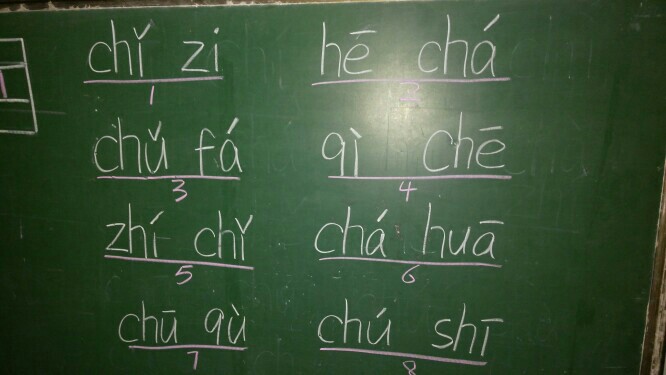 chǐ zi hē chá
1 2
chǔ fá qì chē
3 4
zhí chǐ chá huā
5 6
chū qù chú shī
7 8